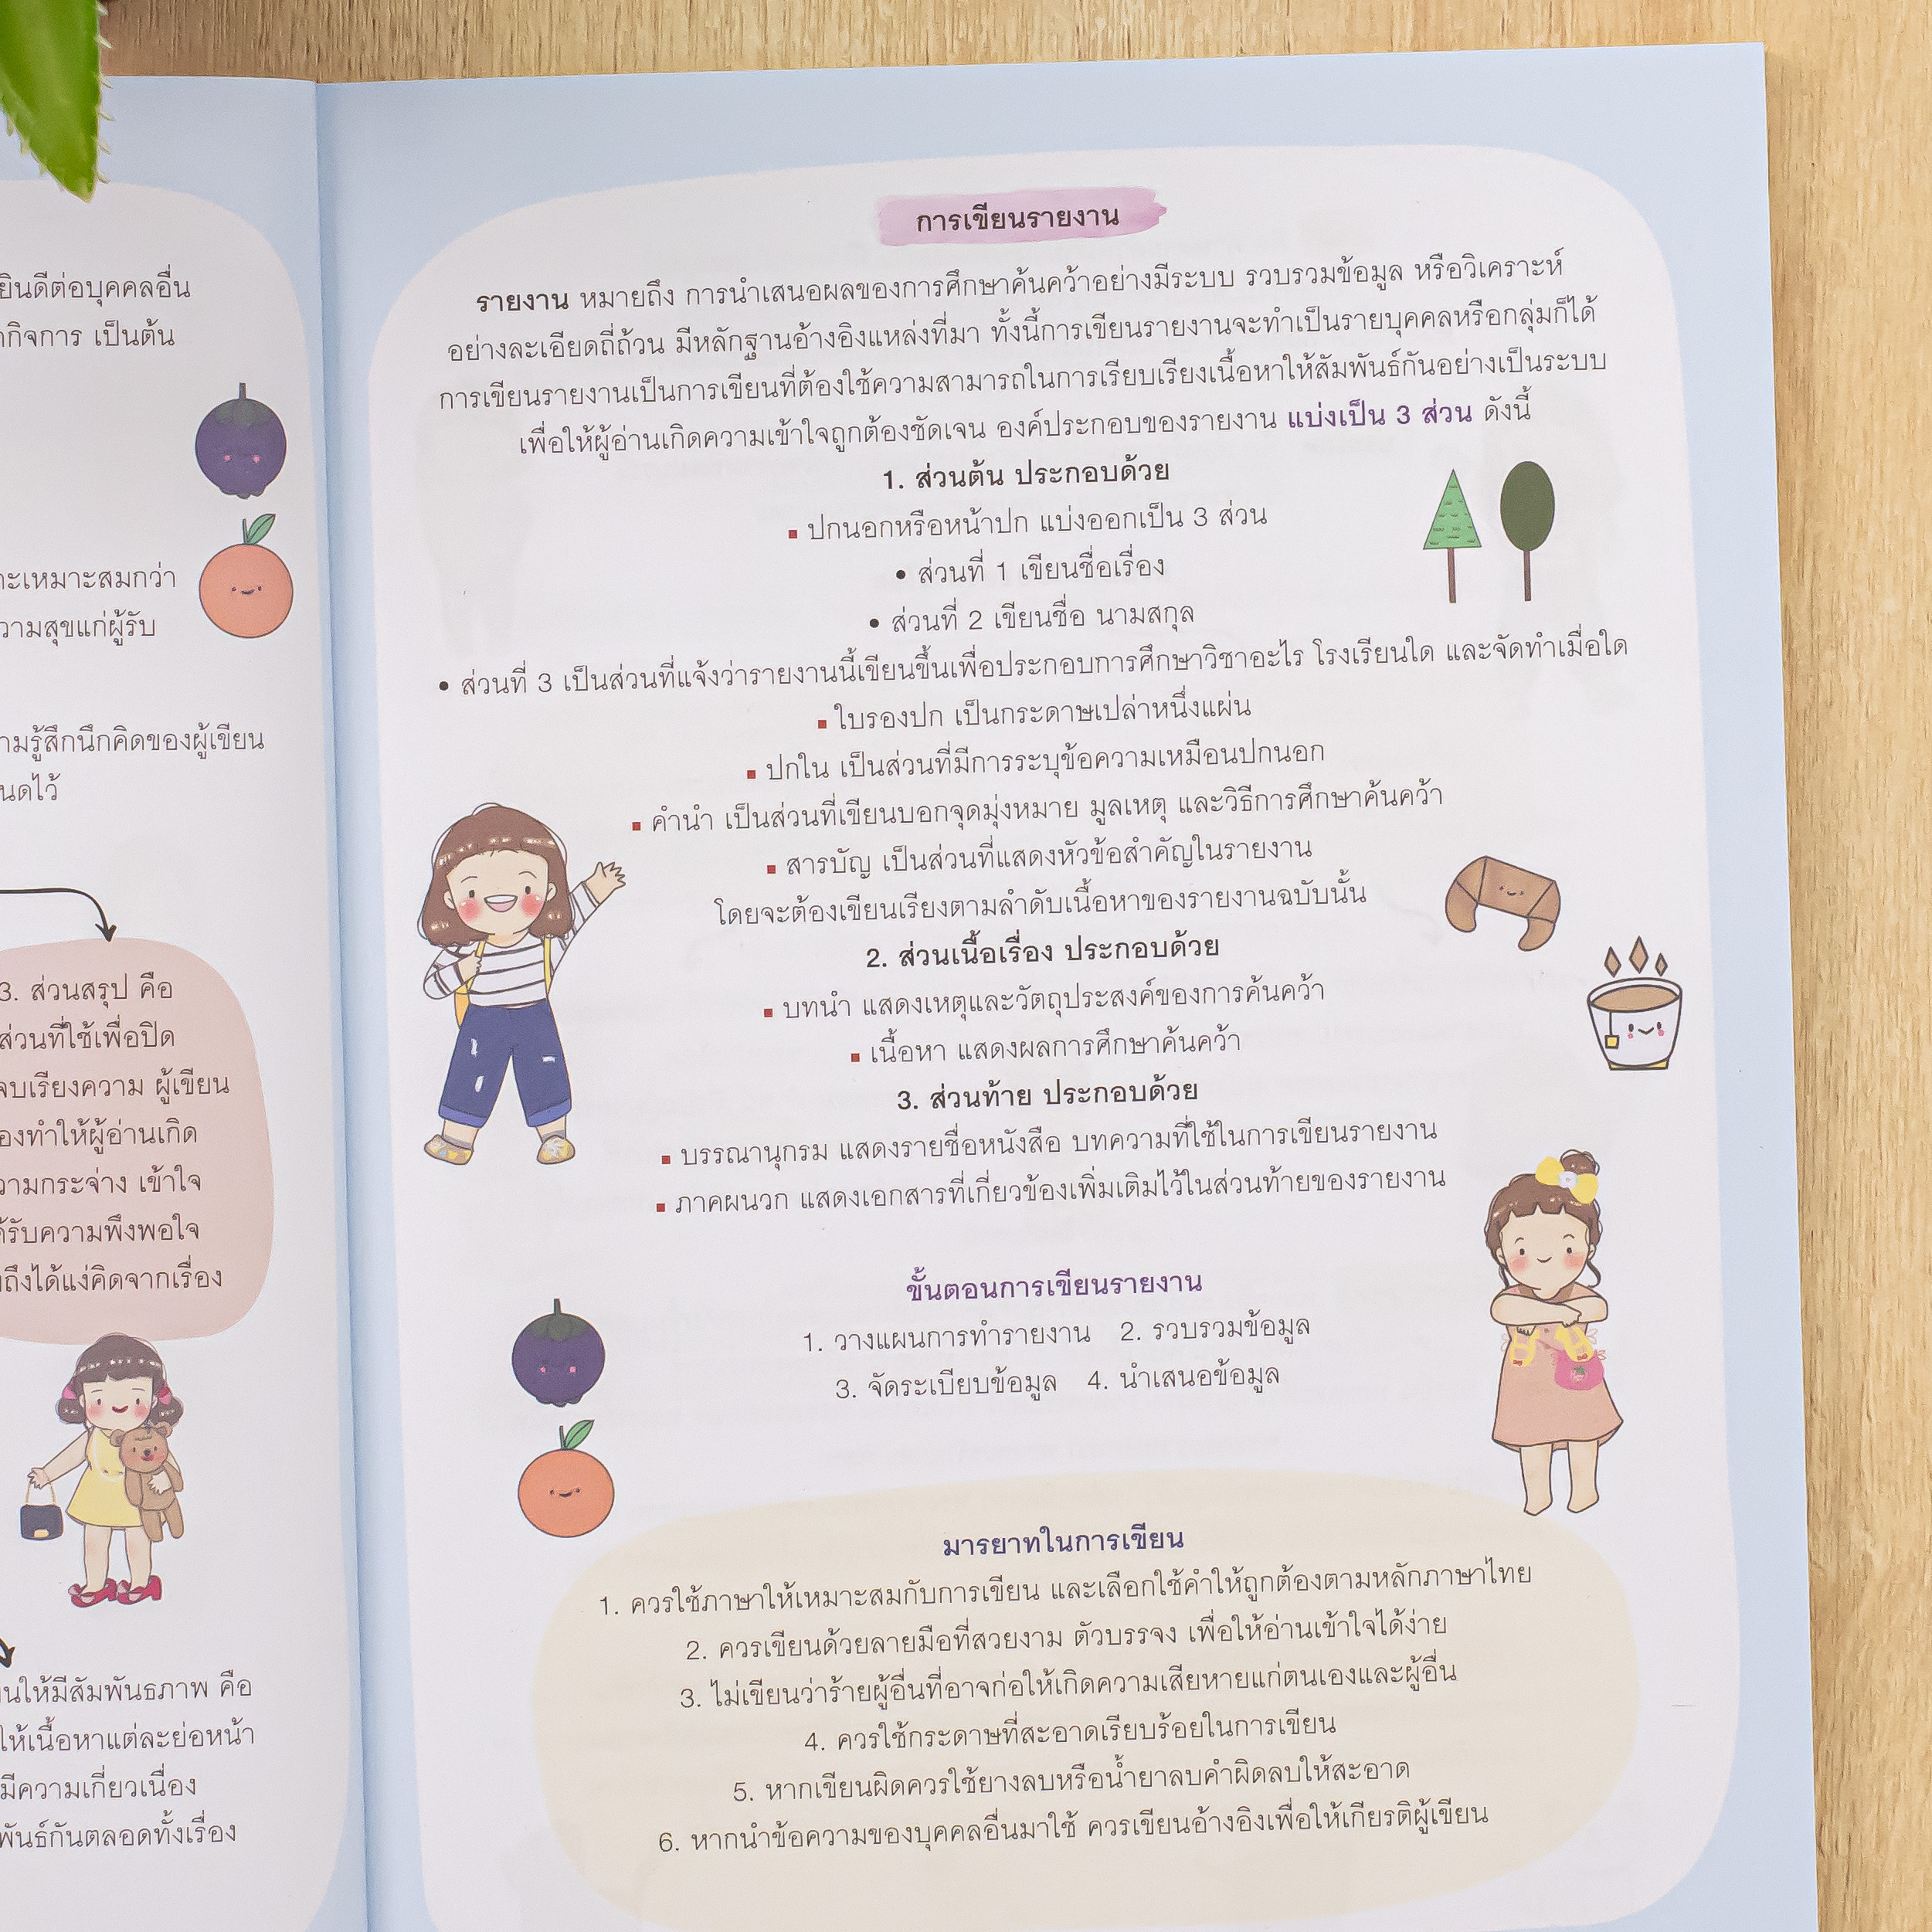 ยินดีต่อบุคคลอื่น
กิจการ เป็นต้น
เหมาะสมกว่า
ความสุขแก่ผู้รับ
ความรู้สึกนึกคิดของผู้เขียน
3. ส่วนสรุป คือ
ส่วนที่ใช้เพื่อปิด
จบเรียงความ ผู้เขียน
ต้องทำให้ผู้อ่านเกิด
ความกระจ่าง เข้าใจ
ได้รับความพึงพอใจ
ถึงได้แง่คิดจากเรื่อง
ให้มีสัมพันธภาพ คือ
ให้เนื้อหาแต่ละย่อหน้า
มีความเกี่ยวเนื่อง
พันธ์กันตลอดทั้งเรื่อง
การเขียนรายงาน
รายงาน หมายถึง การนำเสนอผลของการศึกษาค้นคว้าอย่างมีระบบ รวบรวมข้อมูล หรือวิเคราะห์
อย่างละเอียดถี่ถ้วน มีหลักฐานอ้างอิงแหล่งที่มา ทั้งนี้การเขียนรายงานจะทำเป็นรายบุคคลหรือกลุ่มก็ได้
การเขียนรายงานเป็นการเขียนที่ต้องใช้ความสามารถในการเรียบเรียงเนื้อหาให้สัมพันธ์กันอย่างเป็นระบบ
เพื่อให้ผู้อ่านเกิดความเข้าใจถูกต้องชัดเจน องค์ประกอบของรายงาน แบ่งเป็น 3 ส่วน ดังนี้
1. ส่วนต้น ประกอบด้วย
▪ ปกนอกหรือหน้าปก แบ่งออกเป็น 3 ส่วน
• ส่วนที่ 1 เขียนชื่อเรื่อง
• ส่วนที่ 2 เขียนชื่อ นามสกุล
• ส่วนที่ 3 เป็นส่วนที่แจ้งว่ารายงานนี้เขียนขึ้นเพื่อประกอบการศึกษาวิชาอะไร โรงเรียนใด และจัดทำเมื่อใด
▪ ใบรองปก เป็นกระดาษเปล่าหนึ่งแผ่น
▪ ปกใน เป็นส่วนที่มีการระบุข้อความเหมือนปกนอก
▪ คำนำ เป็นส่วนที่เขียนบอกจุดมุ่งหมาย มูลเหตุ และวิธีการศึกษาค้นคว้า
▪ สารบัญ เป็นส่วนที่แสดงหัวข้อสำคัญในรายงาน
โดยจะต้องเขียนเรียงตามลำดับเนื้อหาของรายงานฉบับนั้น
2. ส่วนเนื้อเรื่อง ประกอบด้วย
▪ บทนำ แสดงเหตุและวัตถุประสงค์ของการค้นคว้า
▪ เนื้อหา แสดงผลการศึกษาค้นคว้า
3. ส่วนท้าย ประกอบด้วย
▪ บรรณานุกรม แสดงรายชื่อหนังสือ บทความที่ใช้ในการเขียนรายงาน
▪ ภาคผนวก แสดงเอกสารที่เกี่ยวข้องเพิ่มเติมไว้ในส่วนท้ายของรายงาน
ขั้นตอนการเขียนรายงาน
1. วางแผนการทำรายงาน 2. รวบรวมข้อมูล
3. จัดระเบียบข้อมูล 4. นำเสนอข้อมูล
มารยาทในการเขียน
1. ควรใช้ภาษาให้เหมาะสมกับการเขียน และเลือกใช้คำให้ถูกต้องตามหลักภาษาไทย
2. ควรเขียนด้วยลายมือที่สวยงาม ตัวบรรจง เพื่อให้อ่านเข้าใจได้ง่าย
3. ไม่เขียนว่าร้ายผู้อื่นที่อาจก่อให้เกิดความเสียหายแก่ตนเองและผู้อื่น
4. ควรใช้กระดาษที่สะอาดเรียบร้อยในการเขียน
5. หากเขียนผิดควรใช้ยางลบหรือน้ำยาลบคำผิดลบให้สะอาด
6. หากนำข้อความของบุคคลอื่นมาใช้ ควรเขียนอ้างอิงเพื่อให้เกียรติผู้เขียน